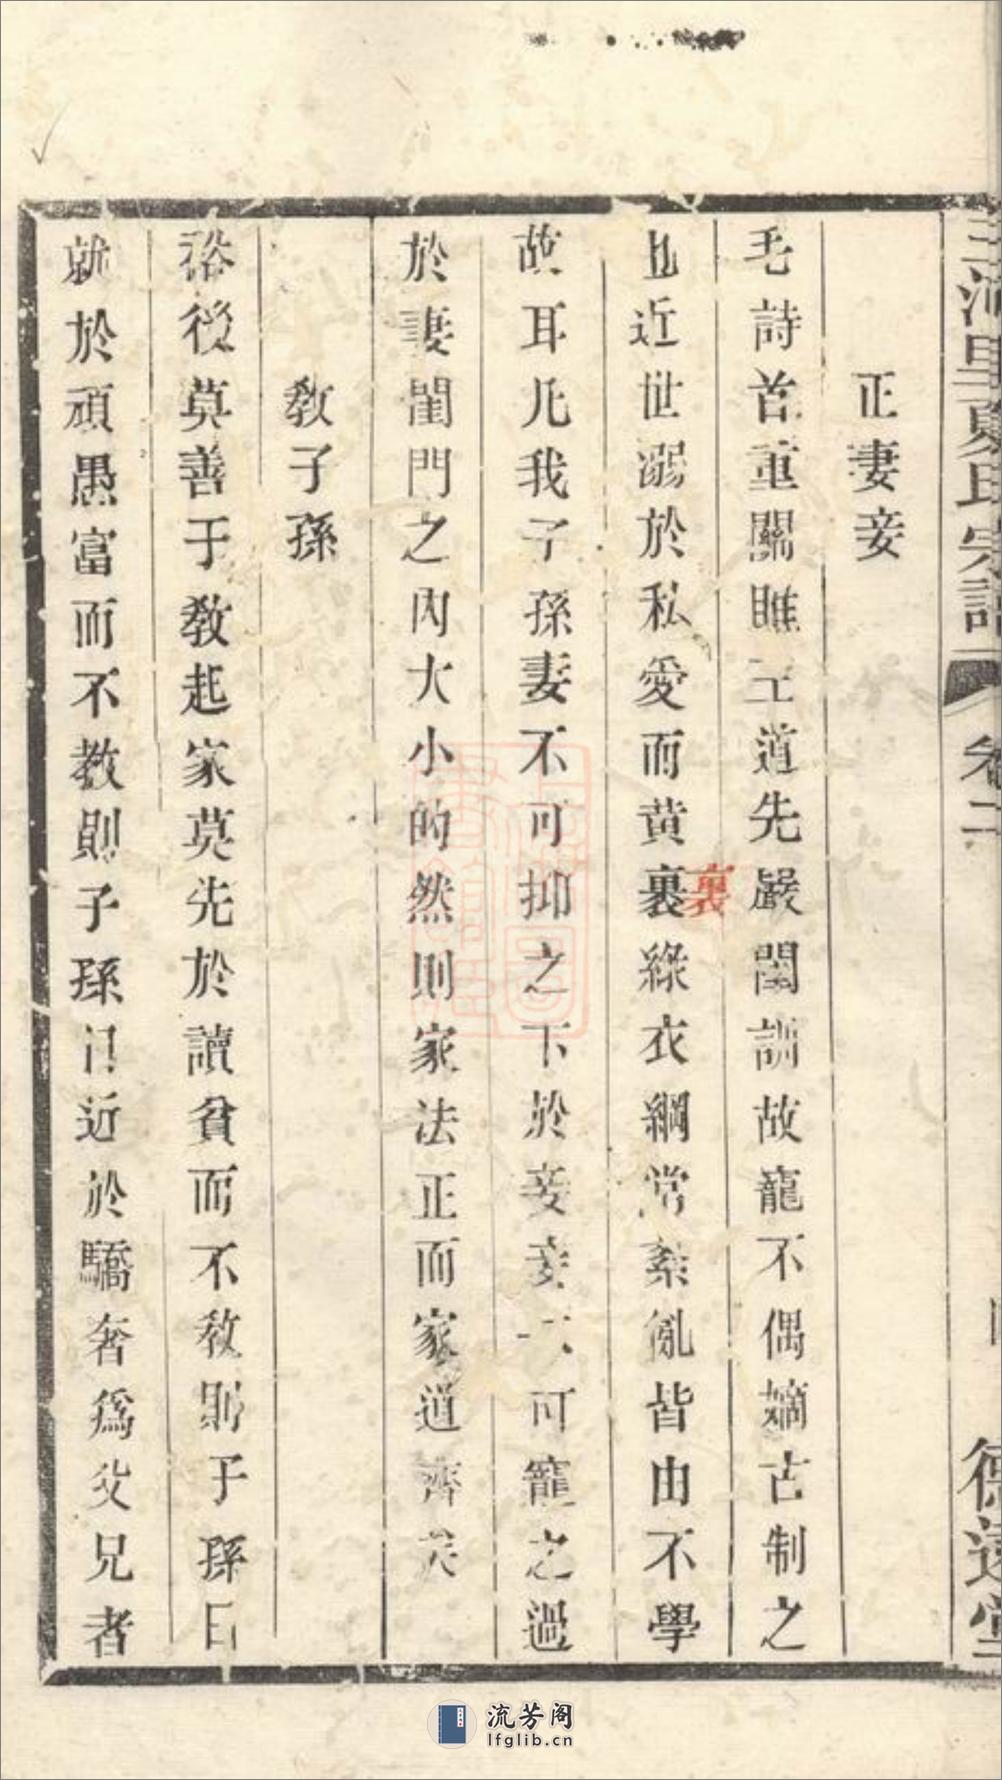 正妻妾
毛詩首重關雎王道先嚴閨訓故寵不偶嫡古制之
且近世溺於私愛而黃裏綠衣綱常紊亂皆由不學
裏
故耳凡我子孫妻不可抑之下於妾妾不可寵之過
於妻閨門之內大小的然則家法正而家道齊矣
教子孫
裕後莫善于教起家莫先於讀貧而不教則子孫日
就於頑愚富而不教則子孫日近於驕奢爲父兄者
氏宗譜
卷二
德遠堂
流芳阁
lfglib.cn